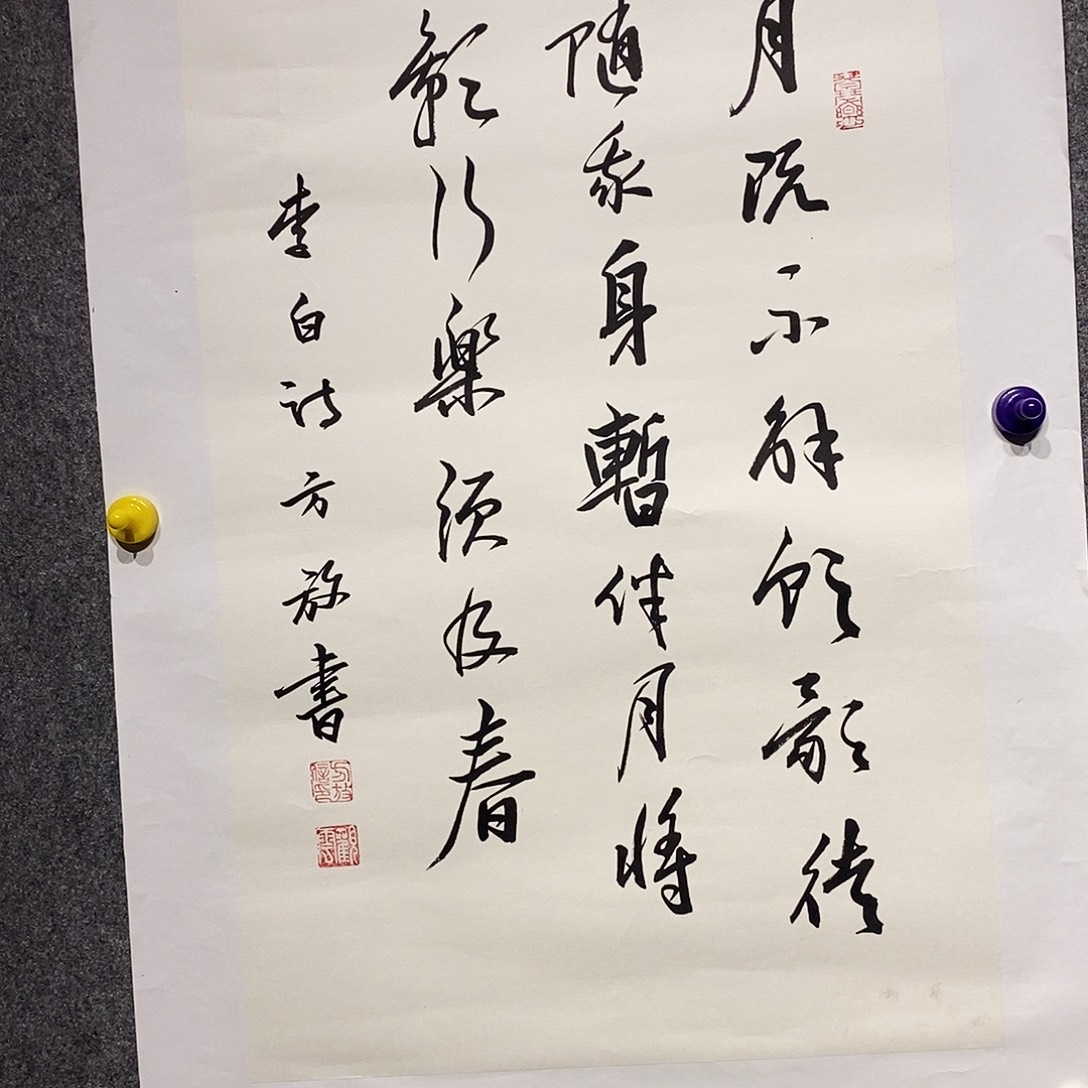 月既不解飲影徒
隨我身暫伴月將
影行樂須及春
李白詩方放書
方放信印